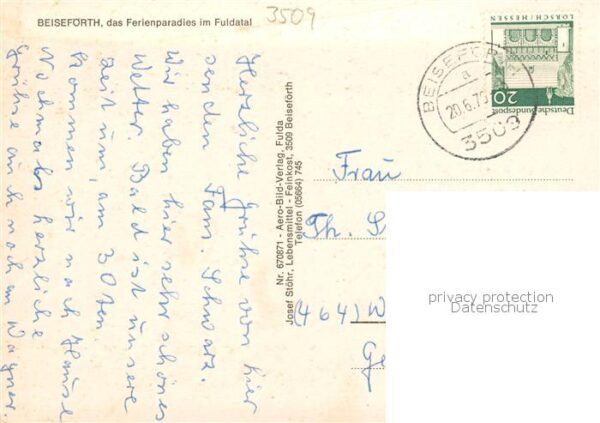 BEISEFÖRTH, das Ferienparadies im Fuldatal
3509
Herzliche Grüße von hier
senden Fam. Schwarz.
Wir haben hier sehr schönes
Wetter. Bald ist unsere
Zeit um, am 30ten
kommen wir nach Hause
Nochmals herzliche
Grüße auch noch an Wagner.
Nr. 670871 - Aero-Bild-Verlag, Fulda
Josef Stöhr, Lebensmittel - Feinkost, 3509 Beiseförth
Telefon (05664) 745
LORSCH/HESSEN
20
Deutsche Bundespost
BEISEFÖRTH
a
20.6.70
3509
Frau
Th. S
(464) W
privacy protection
Datenschutz